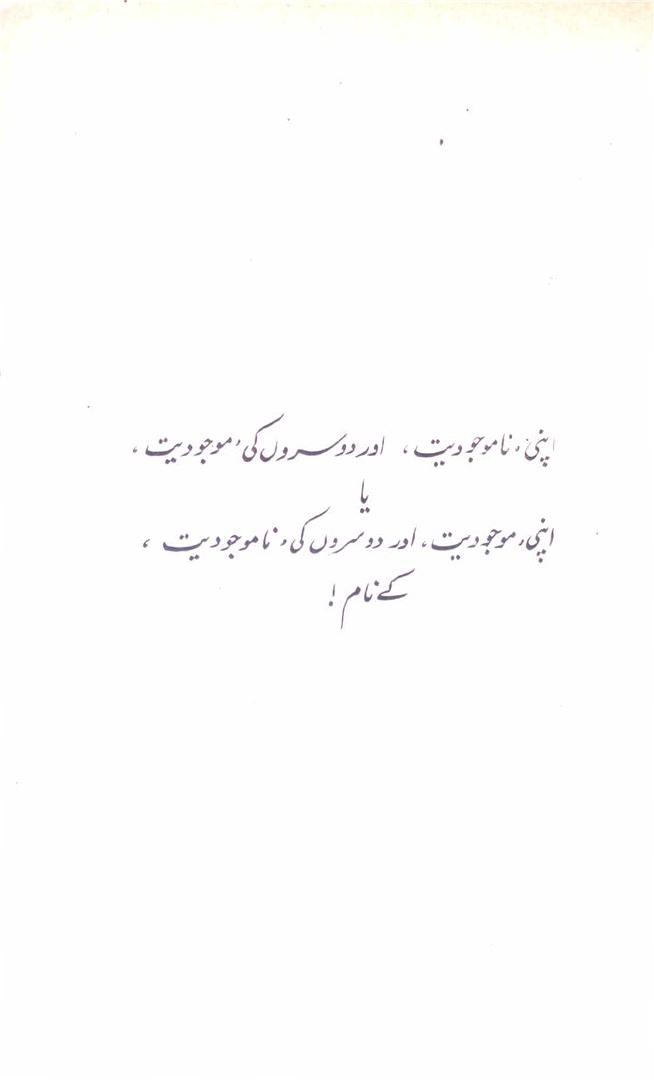 اپنی ’ناموجودیت‘ اور دوسروں کی ’موجودیت‘
یا
اپنی ’موجودیت‘ اور دوسروں کی ’ناموجودیت‘
کے نام !